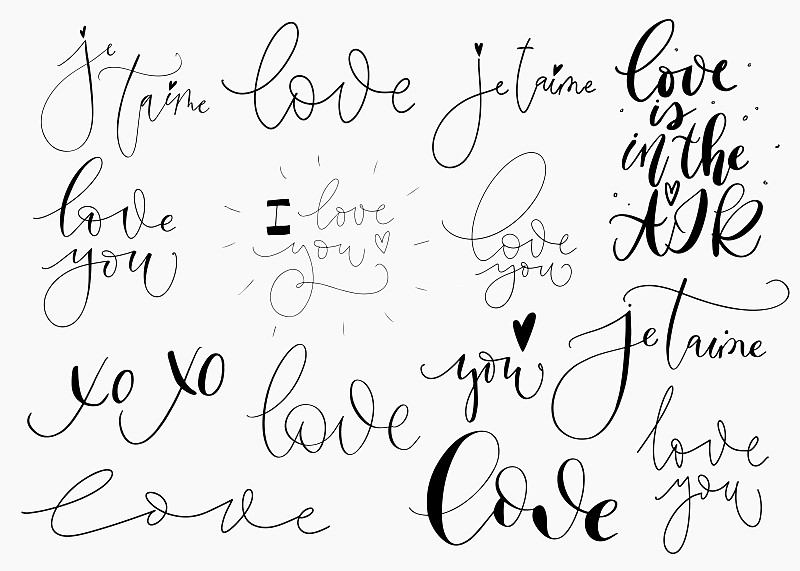 je
t'aime
love
je t'aime
love
is
in the
AIR
love
you
I love
you
love
you
xo xo
love
you
je t'aime
love
love
love
you